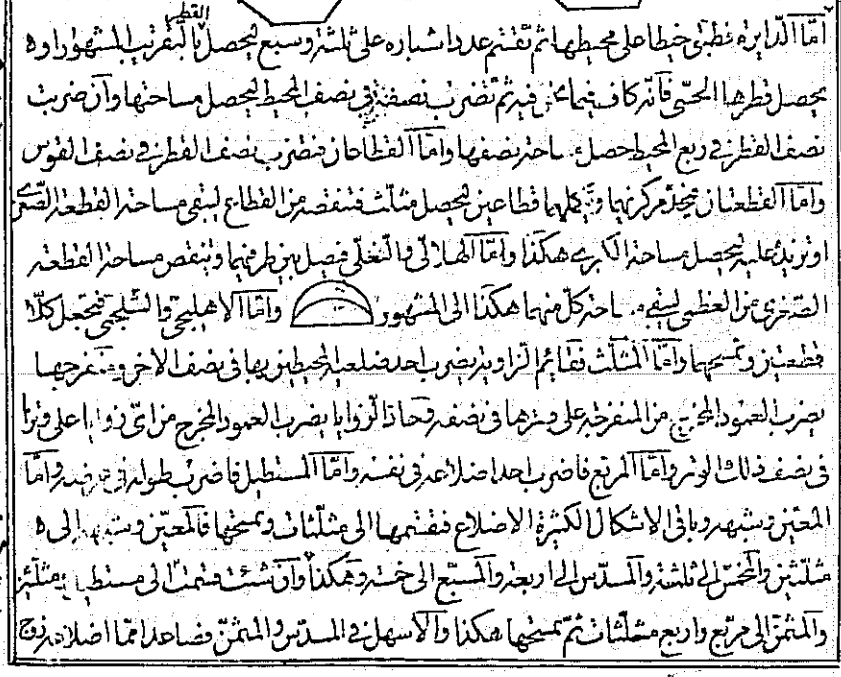 القطر
أمّا الدّايرة فطبّق خيطا على محيطها ثم تقسّم عدد اشباره على ثلثة وسبع ليحصل بالتقريب المشهور او
يحصل قطرها الحسّي فانّه كاف فيما نحن فيه ثم تضرب نصفه في نصف المحيط ليحصل مساحتها وان ضربت
نصف القطر في ربع المحيط حصل مساحة نصفها وامّا القطاعان فتضرب نصف القطر في نصف القوس
وامّا القطعتان فتجد مركزيهما وتكملهما قطاعين ليحصل مثلّث فتنقصه من القطاع ليبقى مساحة القطعة الصغرى
او تزيده عليه ليحصل مساحة الكبرى هكذا وامّا الهلالي والنعلي فيصل بين طرفيهما وينقص مساحة القطعة
الصغرى من العظمى ليبقى مساحة كلّ منهما هكذا الى المشهور وامّا الاهليلجي والشلجمي فتجعل كلّا
قطعتين وتمسحهما وامّا المثلّث فقائم الزاوية يضرب احد ضلعيه المحيطين بها في نصف الاخر ومنفرجها
يضرب العمود المخرج من المنفرجة على وترها في نصفه وحادّ الزوايا يضرب العمود المخرج من اىّ زواياه على وترها
في نصف ذلك الوتر وامّا المربّع فاضرب احد اضلاعه في نفسه وامّا المستطيل فاضرب طوله في عرضه وامّا
المعيّن وشبهه وباقي الاشكال الكثيرة الاضلاع فتقسّمها الى مثلّثات وتمسحها فالمعيّن وشبهه الى
مثلّثين والمخمّس الى ثلثة والمسدّس الى اربعة والمسبّع الى خمسة وهكذا وان شئت قسّمت الى مستطيل ومثلّثين
والمثمّن الى مربّع واربع مثلّثات ثمّ تمسحها هكذا والاسهل في المسدّس والمثمّن فصاعدا ممّا اضلاعه زوج